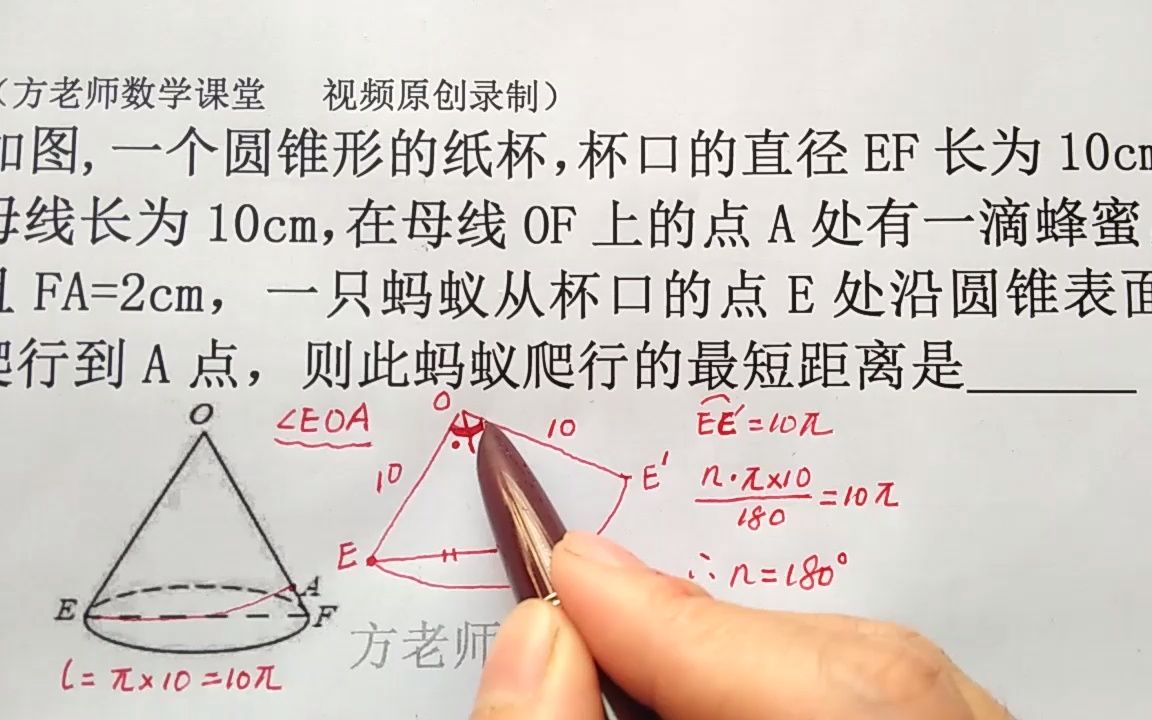 （方老师数学课堂 视频原创录制）
如图,一个圆锥形的纸杯,杯口的直径EF长为10cm
母线长为10cm,在母线OF上的点A处有一滴蜂蜜
且FA=2cm,一只蚂蚁从杯口的点E处沿圆锥表面
爬行到A点,则此蚂蚁爬行的最短距离是______
O
∠EOA
O
10
10
E'
E
A
E
F
l=π×10=10π
方老师
EE'=10π
n·π×10/180=10π
∴n=180°